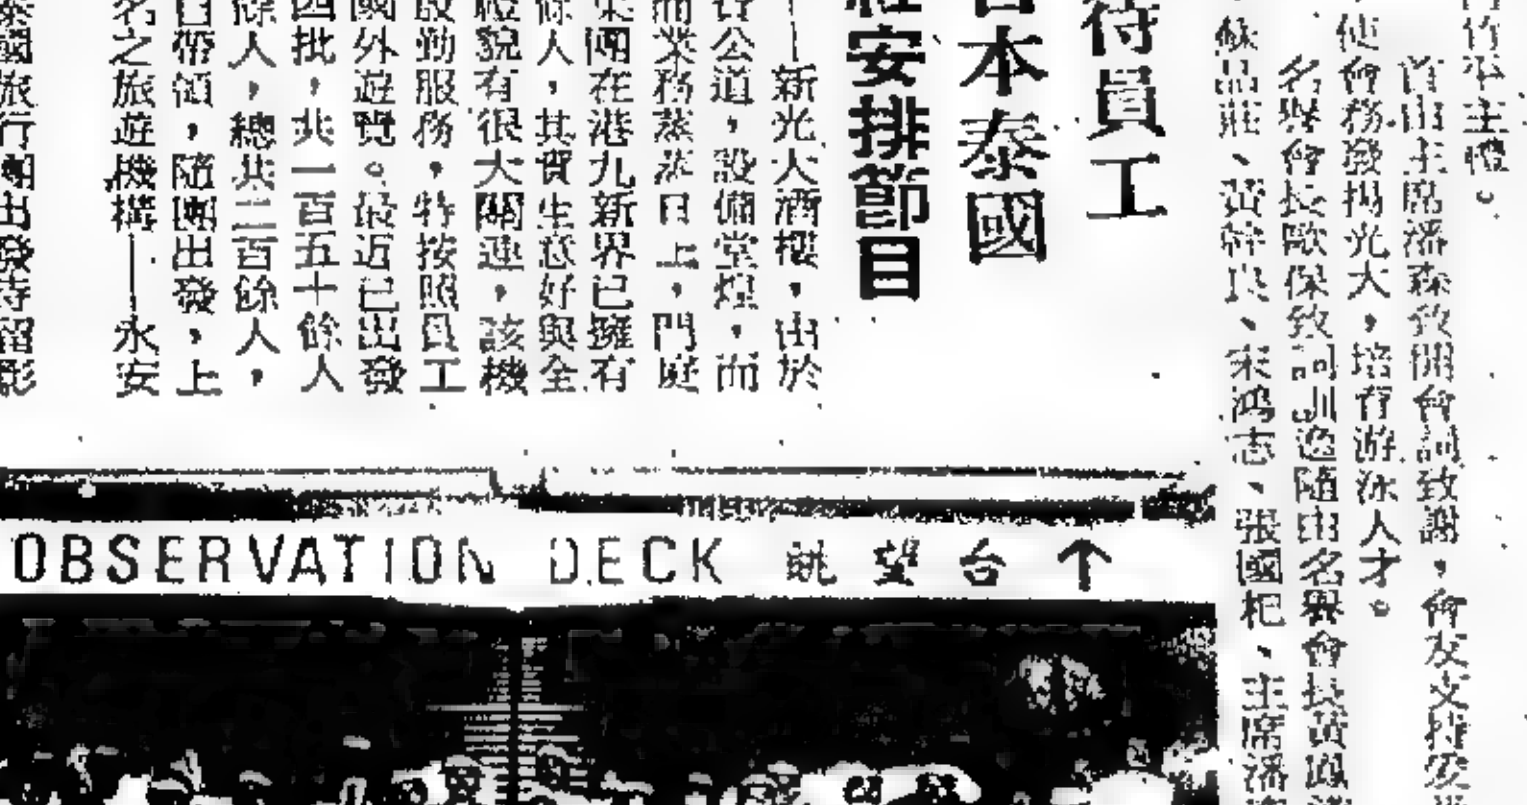 竹平主禮。
首由主席潘森致開會詞致謝，會友支持
使會務發揚光大，培育游泳人才。
名譽會長歐保致詞訓勉隨由名譽會長黃鳳
蘇品莊、黃幹良、宋鴻志、張國杞、主席潘
待員工
日本泰國
安排節目
新光大酒樓，由於
公道，設備堂煌，而
業務蒸蒸日上，門庭
團在港九新界已擁有
餘人，其寶生意好與全
禮貌有很大關連，該機
殷勤服務，特按照員工
國外遊覽。最近已出發
四批，共一百五十餘人
餘人，總共二百餘人，
日帶領，隨團出發，上
名之旅遊機構——永安
泰國旅行團出發時留影
OBSERVATION DECK 眺望台↑